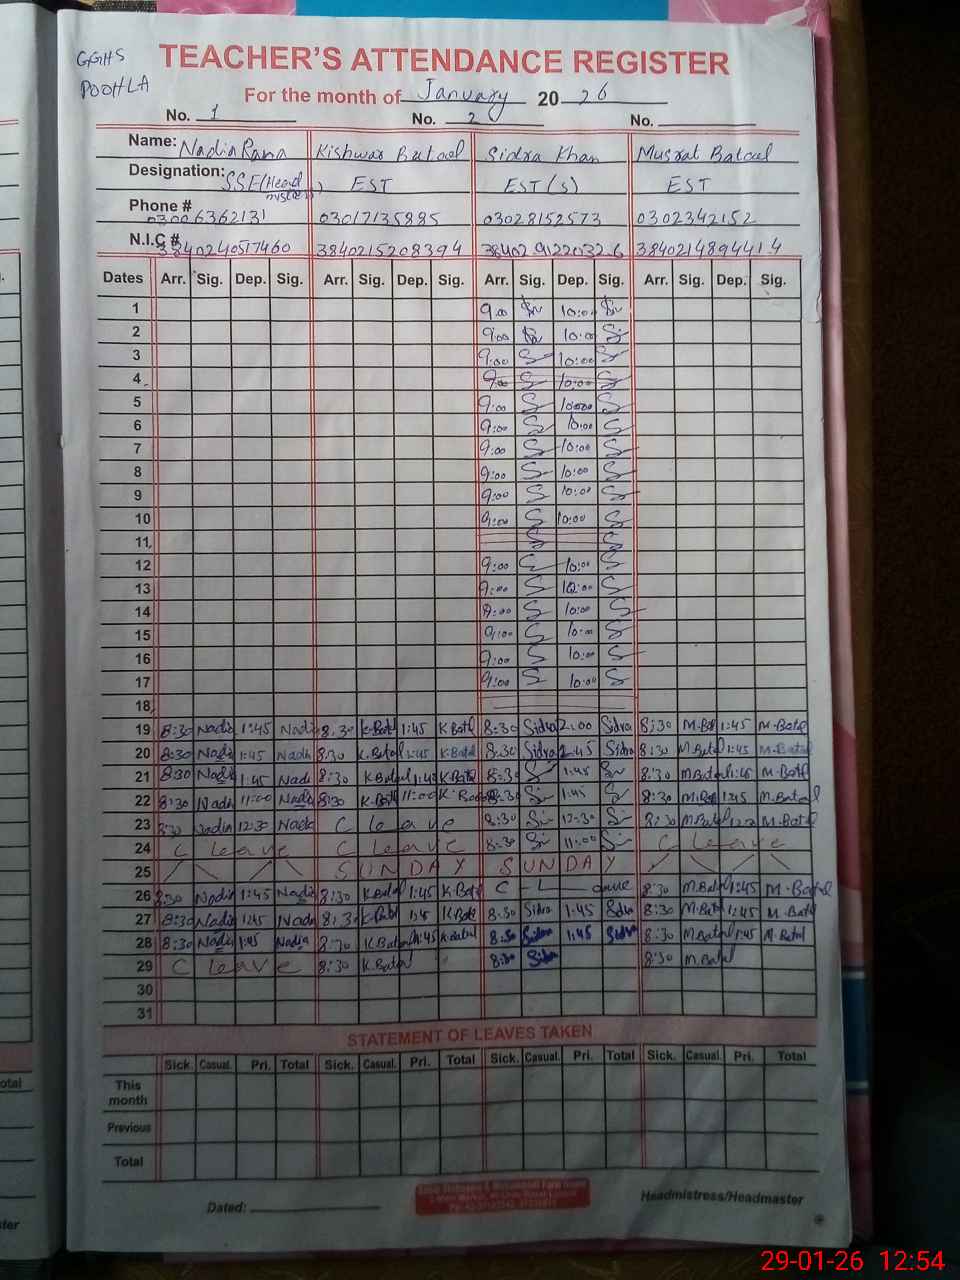 GGHS
POOHLA
TEACHER'S ATTENDANCE REGISTER
For the month of January 20 26
No. 1 No. 2 No.
Name: Nadia Rana Kishwar Batool Sidra Khan Musrat Batool
Designation: SSE (Head EST EST (S) EST
Phone # 03006362131 03017135885 03028152573 0302342152
N.I.C # 3840240517460 3840215208394 3840214894414
Dates Arr. Sig. Dep. Sig. Arr. Sig. Dep. Sig. Arr. Sig. Dep. Sig. Arr. Sig. Dep. Sig.
1 9:00 10:00
2 9:00 10:00
3 9:00 10:00
4 9:00 10:00
5 9:00 10:00
6 9:00 10:00
7 9:00 10:00
8 9:00 10:00
9 9:00 10:00
10 9:00 10:00
11
12 9:00 10:00
13 9:00 10:00
14 9:00 10:00
15 9:00 10:00
16 9:00 10:00
17 9:00 10:00
18
19 8:30 Nadia 1:45 Nadia 8:30 K.Batl 1:45 K Batl 8:30 Sidra 2:00 Sidra 8:30 M.Batl 1:45 M.Batol
20 8:30 Nadia 1:45 Nadi 8:30 K.Batol 1:45 K.Batol 8:30 Sidra 2:45 Sidra 8:30 M.Batol 1:45 M.Batol
21 8:30 Nadia 1:45 Nadi 8:30 K.Batol 1:45 K.Batol 8:30 1:45 8:30 M.Batol 1:45 M.Batl
22 8:30 Nadi 11:00 Nadia 8:30 K.Batl 11:00 8:30 1:45 8:30 M.Batl 1:45 M.Batool
23 8:30 Nadia 12:30 Nadia C leave 8:30 12:30 8:30 M.Batol M.Batol
24 C leave C leave 8:30 11:00 C leave
25 SUNDAY SUNDAY
26 8:30 Nadia 1:45 Nadia 8:30 K.Batol 1:45 K.Batol C - L 8:30 M.Batol 1:45 M.Batol
27 8:30 Nadia 1:45 Nadia 8:30 K.Batol 1:45 K.Batl 8:30 Sidra 1:45 Sidra 8:30 M.Batol 1:45 M.Batol
28 8:30 Nadia 1:45 Nadia 8:30 K.Batol 1:45 K.Batol 8:30 Sidra 1:45 Sidra 8:30 M.Batol 1:45 M.Batol
29 C leave 8:30 K.Batol 8:30 Sidra 8:30 M.Batol
30
31
STATEMENT OF LEAVES TAKEN
Sick. Casual. Pri. Total Sick. Casual. Pri. Total Sick. Casual. Pri. Total Sick. Casual. Pri. Total
This
month
Previous
Total
Dated: Headmistress/Headmaster
29-01-26 12:54